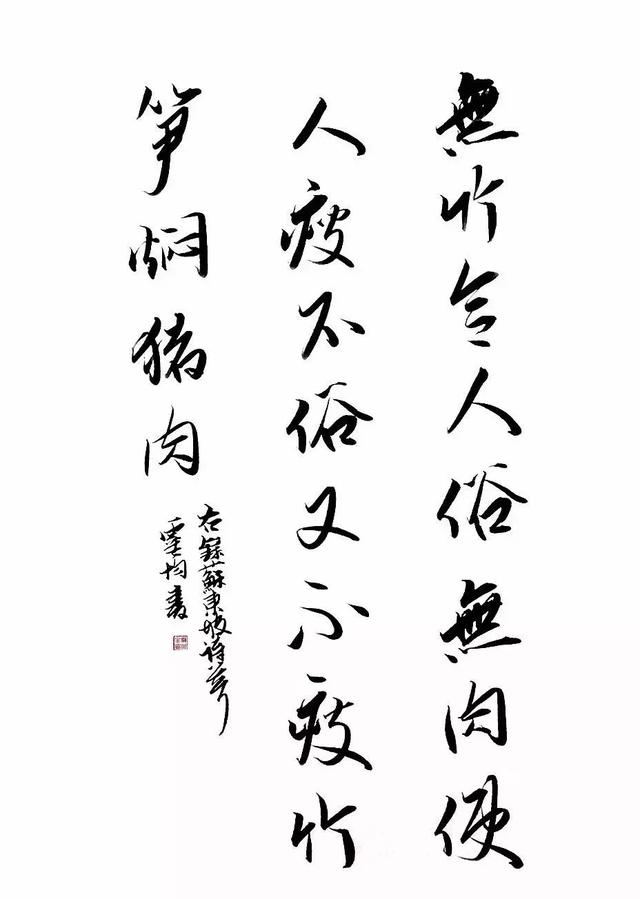 無竹令人俗無肉便
人瘦不俗又不瘦竹
笋焖猪肉
右錄蘇東坡詩意
書